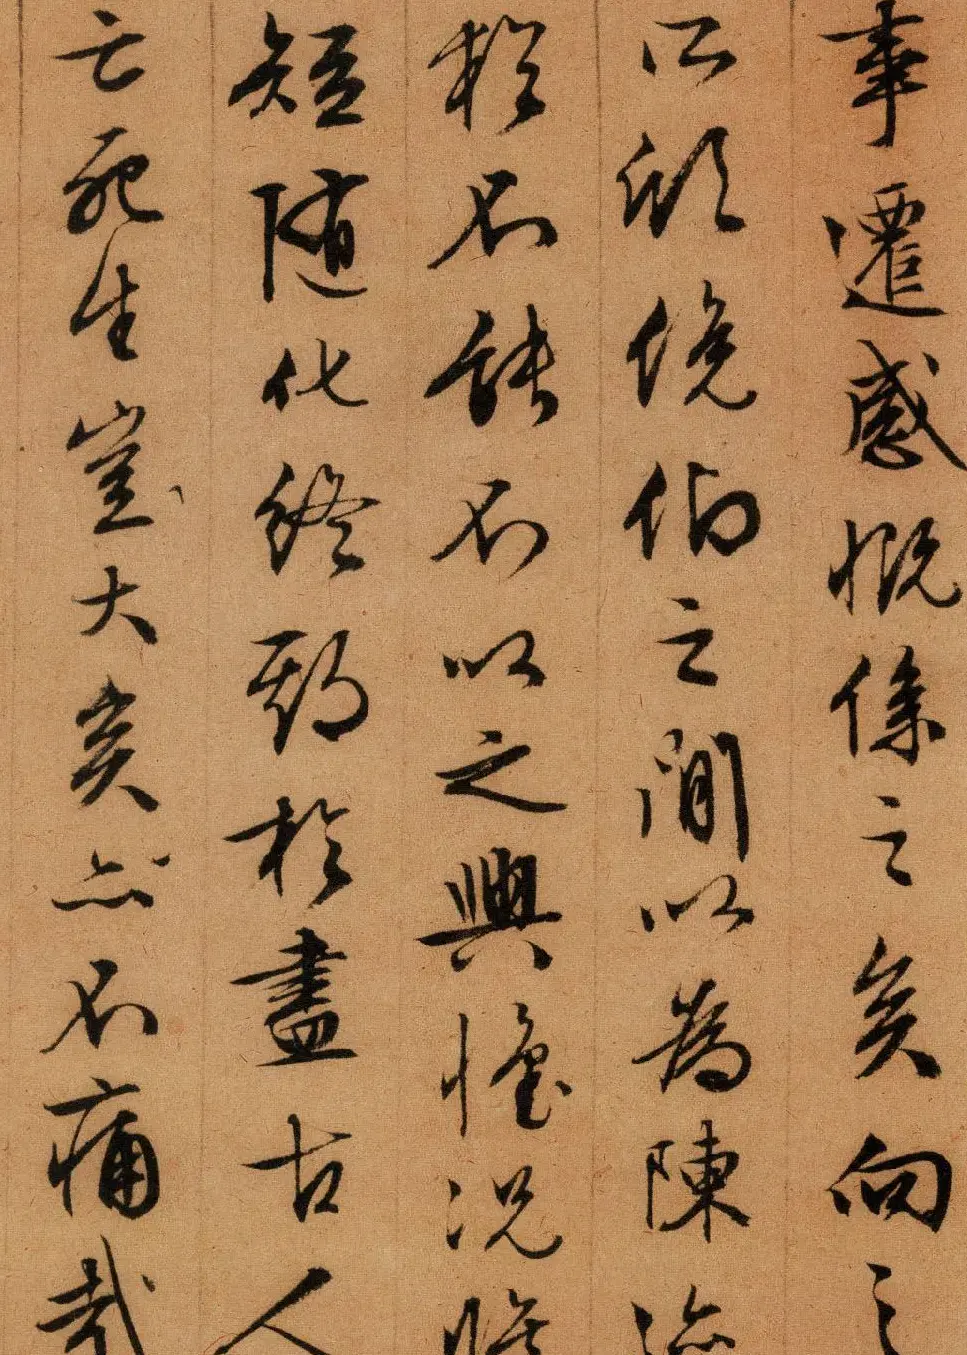 事遷感慨係之矣向之
所欣俛仰之閒以為陳迹
猶不能不以之興懷況脩
短随化終期於盡古人
云死生豈大矣亦不痛哉